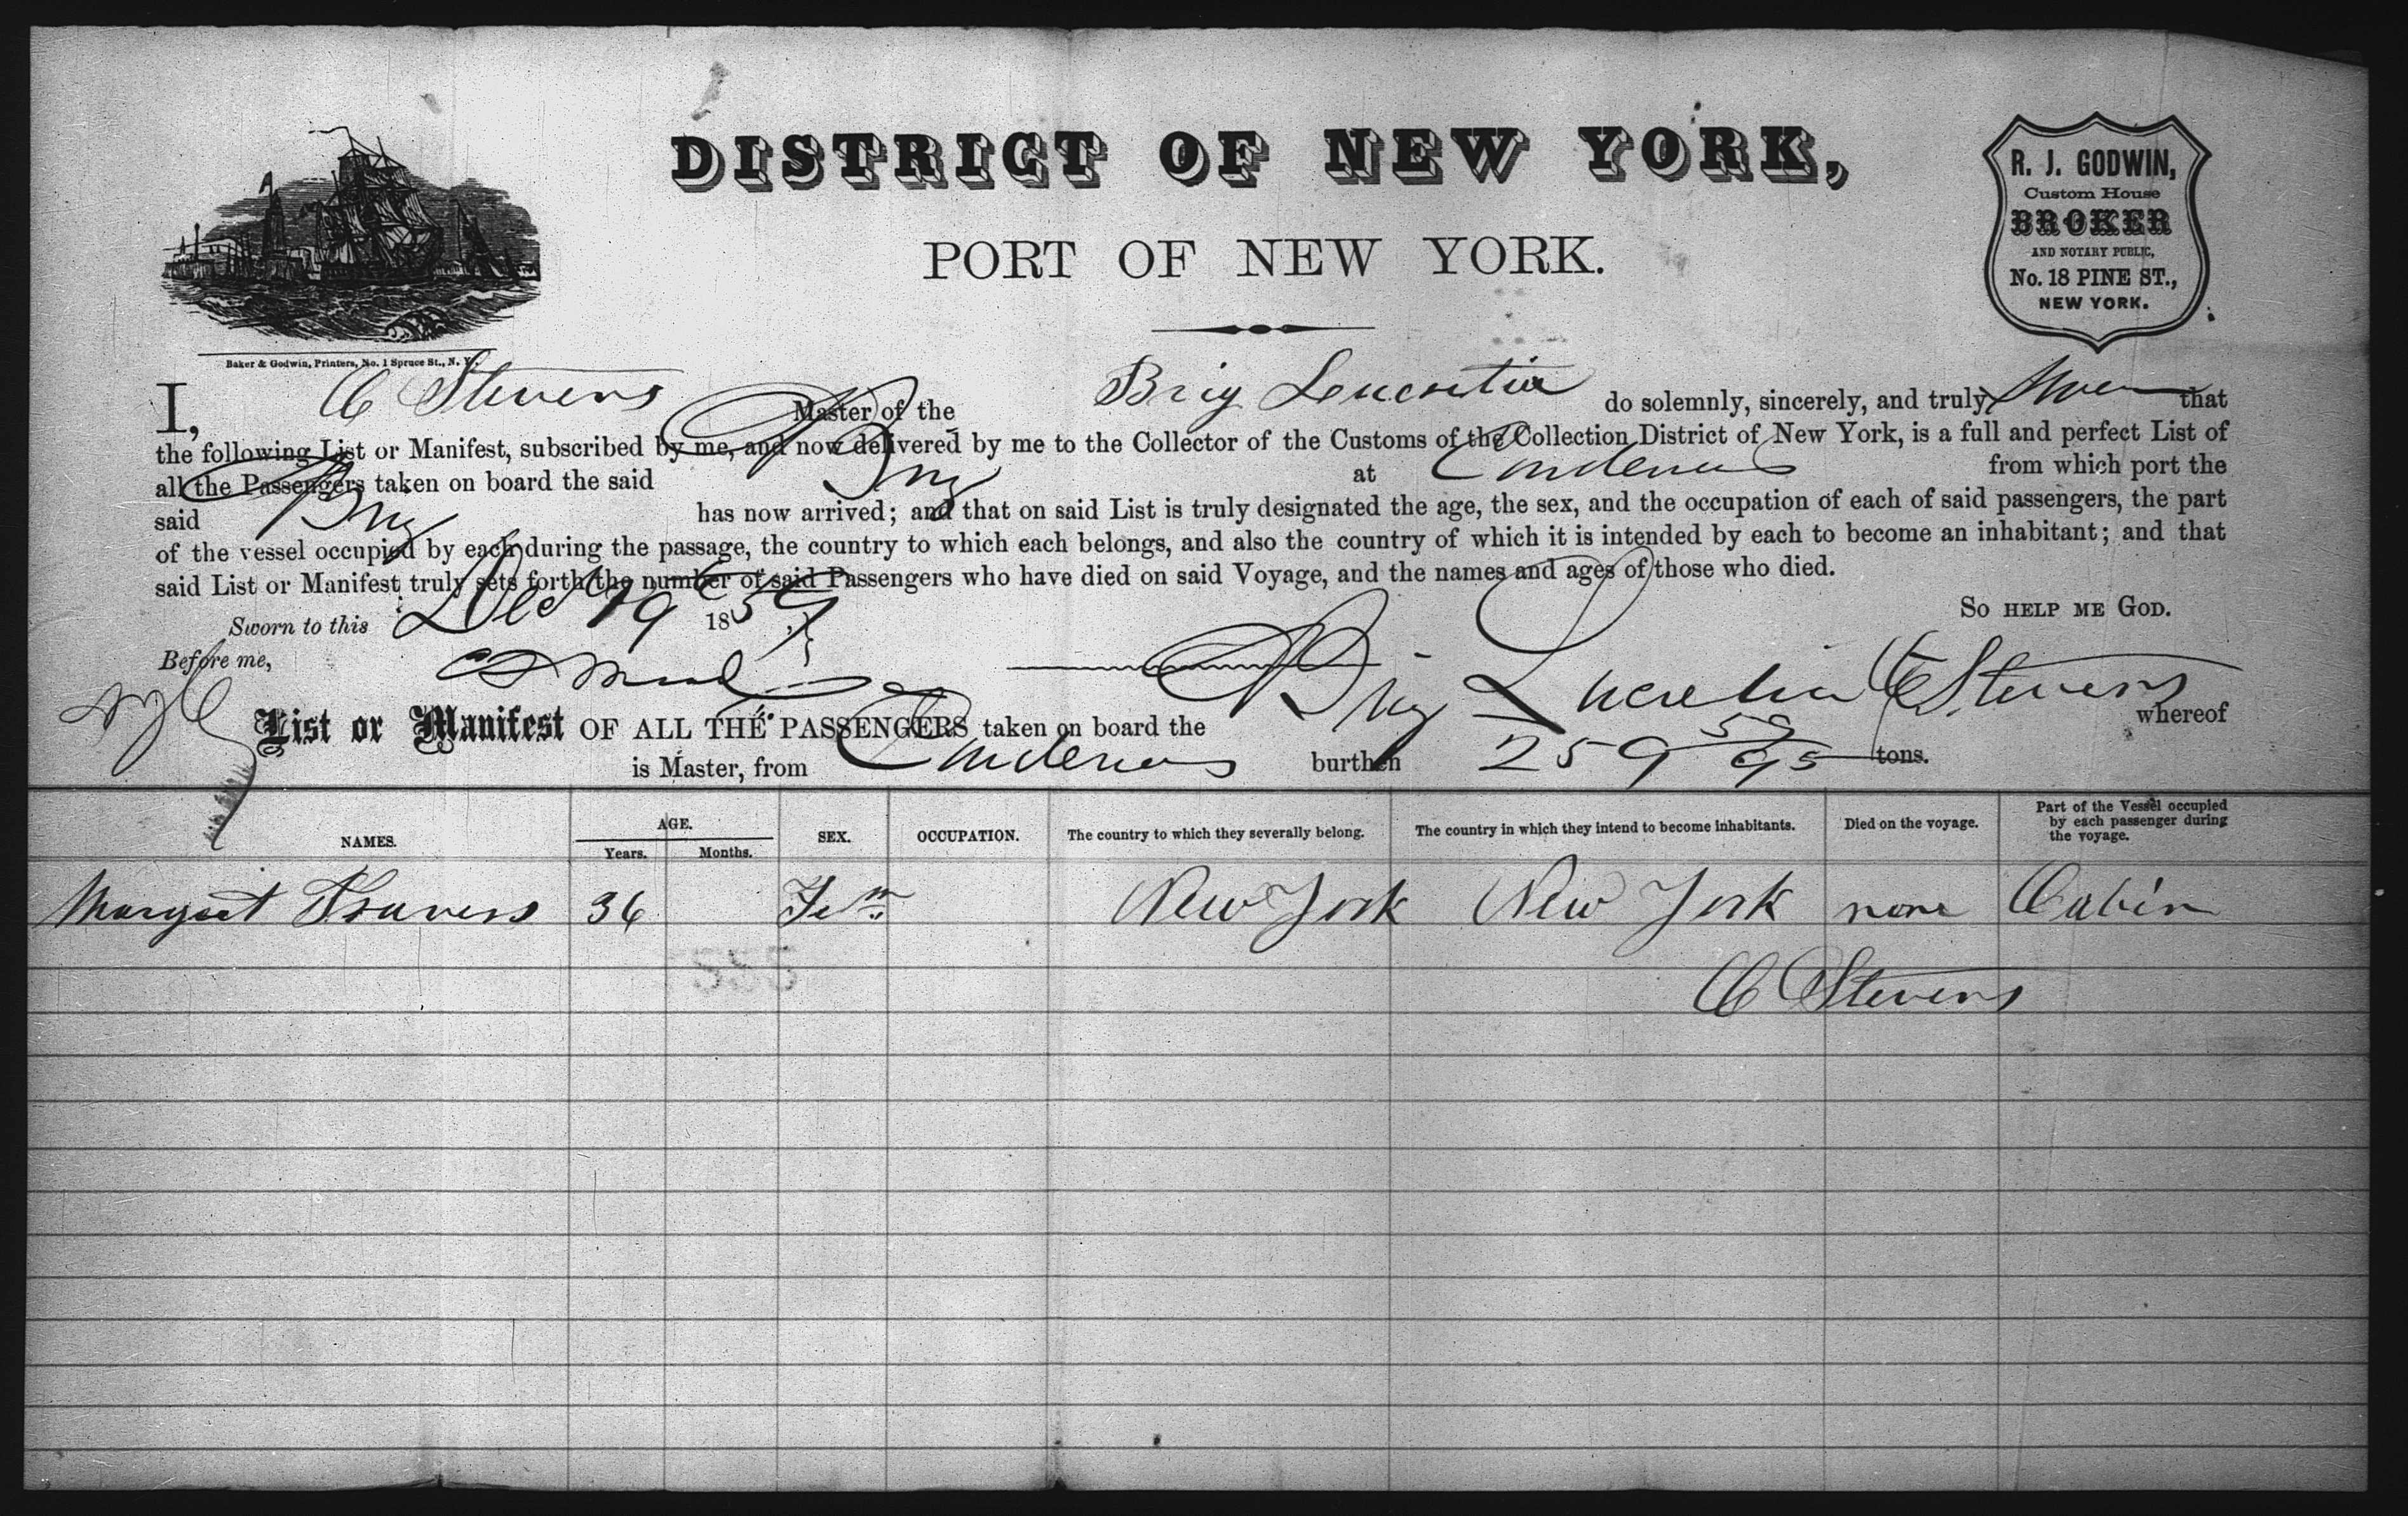 DISTRICT OF NEW YORK,
PORT OF NEW YORK.
R. J. GODWIN,
Custom House
BROKER
AND NOTARY PUBLIC,
No. 18 PINE ST.,
NEW YORK.
Baker & Godwin, Printers, No. 1 Spruce St., N. Y.
I, C Stevens Master of the Brig do solemnly, sincerely, and truly Swear that
the following List or Manifest, subscribed by me, and now delivered by me to the Collector of the Customs of the Collection District of New York, is a full and perfect List of
all the Passengers taken on board the said Brig at Cardenas from which port the
said Brig has now arrived; and that on said List is truly designated the age, the sex, and the occupation of each of said passengers, the part
of the vessel occupied by each during the passage, the country to which each belongs, and also the country of which it is intended by each to become an inhabitant; and that
said List or Manifest truly sets forth the number of said Passengers who have died on said Voyage, and the names and ages of those who died.
So help me God.
Sworn to this Dec 19 1859
Before me,
C Stevens
List or Manifest OF ALL THE PASSENGERS taken on board the Brig Lucretia whereof
is Master, from Cardenas burthen 259 59/95 tons.
NAMES. AGE. Years. Months. SEX. OCCUPATION. The country to which they severally belong. The country in which they intend to become inhabitants. Died on the voyage. Part of the Vessel occupied by each passenger during the voyage.
Margaet Travers 36 Fem New York New York none Cabin
C Stevens